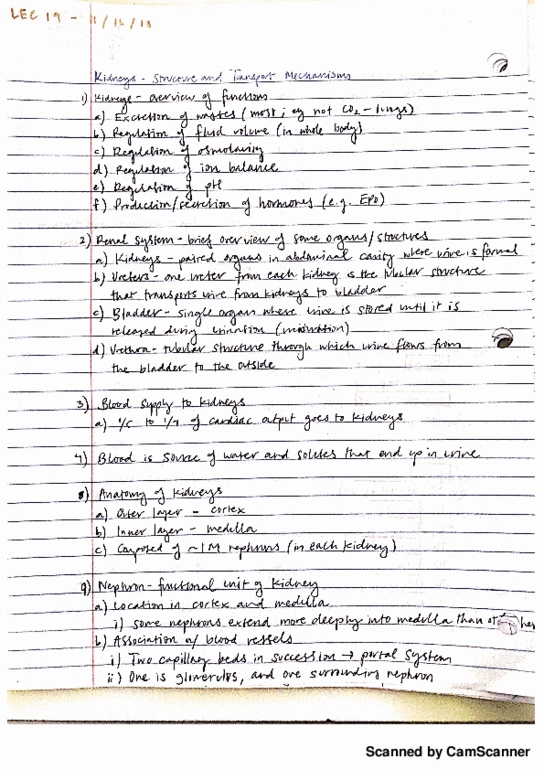 LEC 19 - 1/12/18
Kidneys - Structure and Transport Mechanisms
1) Kidneys - overview of functions
a) Excretion of wastes (most; eg not CO2 - lungs)
b) Regulation of fluid volume (in whole body)
c) Regulation of osmolarity
d) Regulation of ion balance
e) Regulation of pH
f) Production/secretion of hormones (e.g. EPO)
2) Renal system - brief overview of some organs/structures
a) Kidneys - paired organs in abdominal cavity where urine is formed
b) Ureters - one ureter from each kidney is the tubular structure
that transports urine from kidneys to bladder
c) Bladder - single organ where urine is stored until it is
released during urination (micturition)
d) Urethra - tubular structure through which urine flows from
the bladder to the outside
3) Blood supply to kidneys
a) 1/5 to 1/4 of cardiac output goes to kidneys
4) Blood is source of water and solutes that end up in urine
8) Anatomy of kidneys
a) Outer layer - cortex
b) Inner layer - medulla
c) Composed of ~1M nephrons (in each kidney)
9) Nephron - functional unit of kidney
a) Location in cortex and medulla
i) some nephrons extend more deeply into medulla than
b) Association w/ blood vessels
i) Two capillary beds in succession → portal system
ii) One is glomerulus, and one surrounding nephron
Scanned by CamScanner